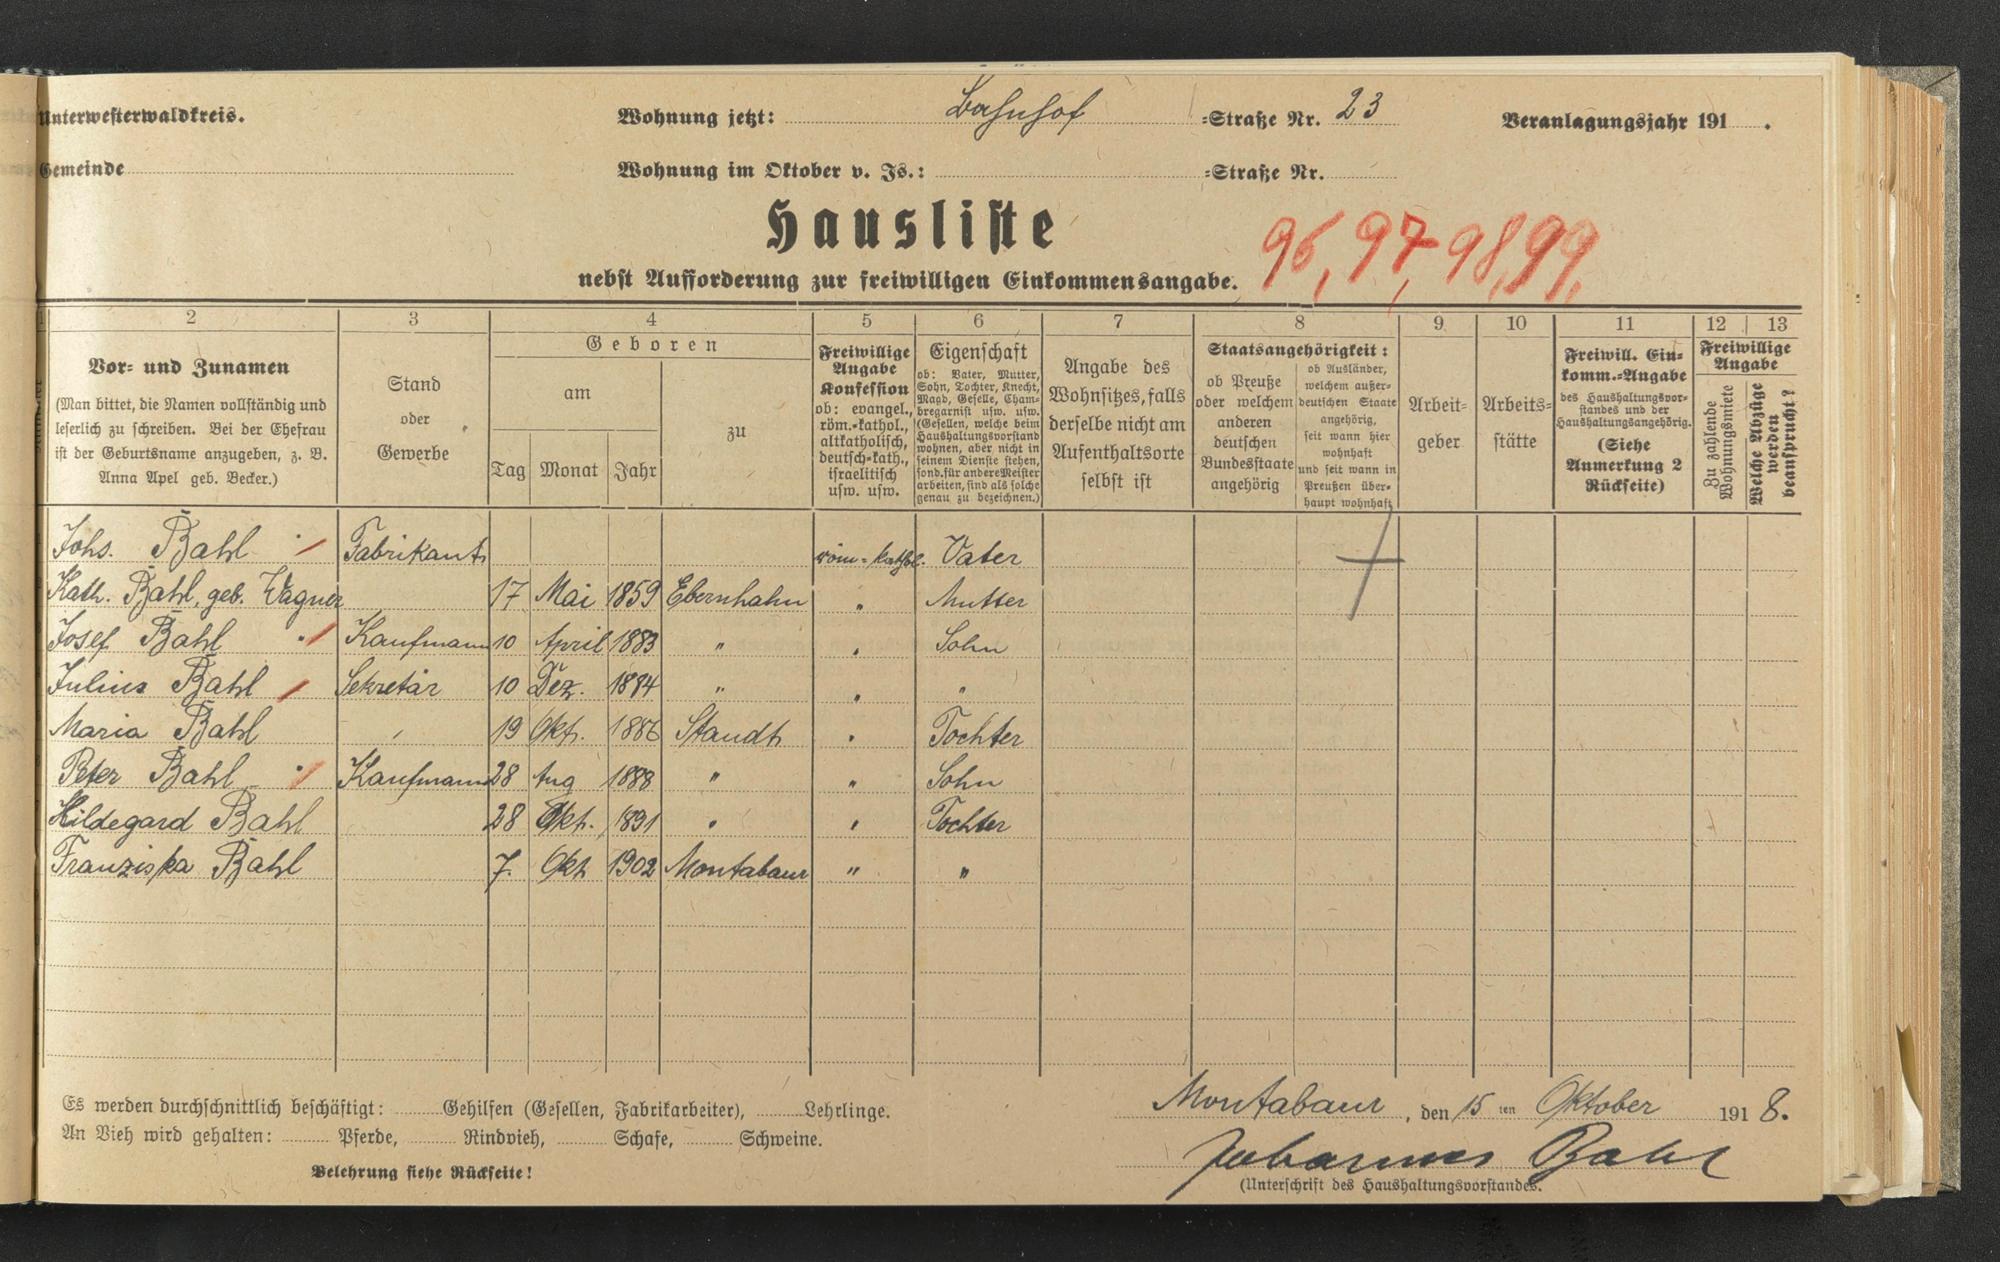 Unterwesterwaldkreis. Wohnung jetzt: Bahnhof =Straße Nr. 23 Veranlagungsjahr 191 .
Gemeinde Wohnung im Oktober v. Js.: =Straße Nr.
Hausliste
96, 97, 98, 99.
nebst Aufforderung zur freiwilligen Einkommensangabe.
2 3 4 5 6 7 8 9 10 11 12 13
Vor- und Zunamen
(Man bittet, die Namen vollständig und
leserlich zu schreiben. Bei der Ehefrau
ist der Geburtsname anzugeben, z. B.
Anna Apel geb. Becker.)
Stand
oder
Gewerbe
Geboren
am
Tag Monat Jahr
zu
Freiwillige
Angabe
Konfession
ob: evangel.,
röm.-kathol.,
altkatholisch,
deutsch-kath.,
israelitisch
usw. usw.
Eigenschaft
ob: Vater, Mutter,
Sohn, Tochter, Knecht,
Magd, Geselle, Cham-
bregarnist usw. usw.
(Gesellen, welche beim
Haushaltungsvorstand
wohnen, aber nicht in
seinem Dienste stehen,
sond. für andere Meister
arbeiten, sind als solche
genau zu bezeichnen.)
Angabe des
Wohnsitzes, falls
derselbe nicht am
Aufenthaltsorte
selbst ist
Staatsangehörigkeit:
ob Preuße
oder welchem
anderen
deutschen
Bundesstaate
angehörig
ob Ausländer,
welchem außer-
deutschen Staate
angehörig,
seit wann hier
wohnhaft
und seit wann in
Preußen über-
haupt wohnhaft
Arbeit-
geber
Arbeits-
stätte
Freiwill. Ein-
komm.-Angabe
des Haushaltungsvor-
standes und der
Haushaltungsangehörig.
(Siehe
Anmerkung 2
Rückseite)
Freiwillige
Angabe
Zu zahlende
Wohnungsmiete
Welche Abzüge
werden
beansprucht?
Johs. Bahl Fabrikant röm-kathol. Vater
Kath. Bahl, geb. Wagner 17 Mai 1859 Ebernhahn " Mutter
Josef Bahl Kaufmann 10 April 1883 " " Sohn
Julius Bahl Sekretär 10 Dez. 1884 " " "
Maria Bahl 19 Okt. 1886 Staudt " Tochter
Peter Bahl Kaufmann 28 Aug 1888 " " Sohn
Hildegard Bahl 28 Okt. 1891 " " Tochter
Franziska Bahl 7. Okt 1902 Montabaur " "
Es werden durchschnittlich beschäftigt: Gehilfen (Gesellen, Fabrikarbeiter), Lehrlinge.
An Vieh wird gehalten: Pferde, Rindvieh, Schafe, Schweine.
Belehrung siehe Rückseite!
Montabaur, den 15 ten Oktober 1918.
Johannes Bahl
(Unterschrift des Haushaltungsvorstandes.